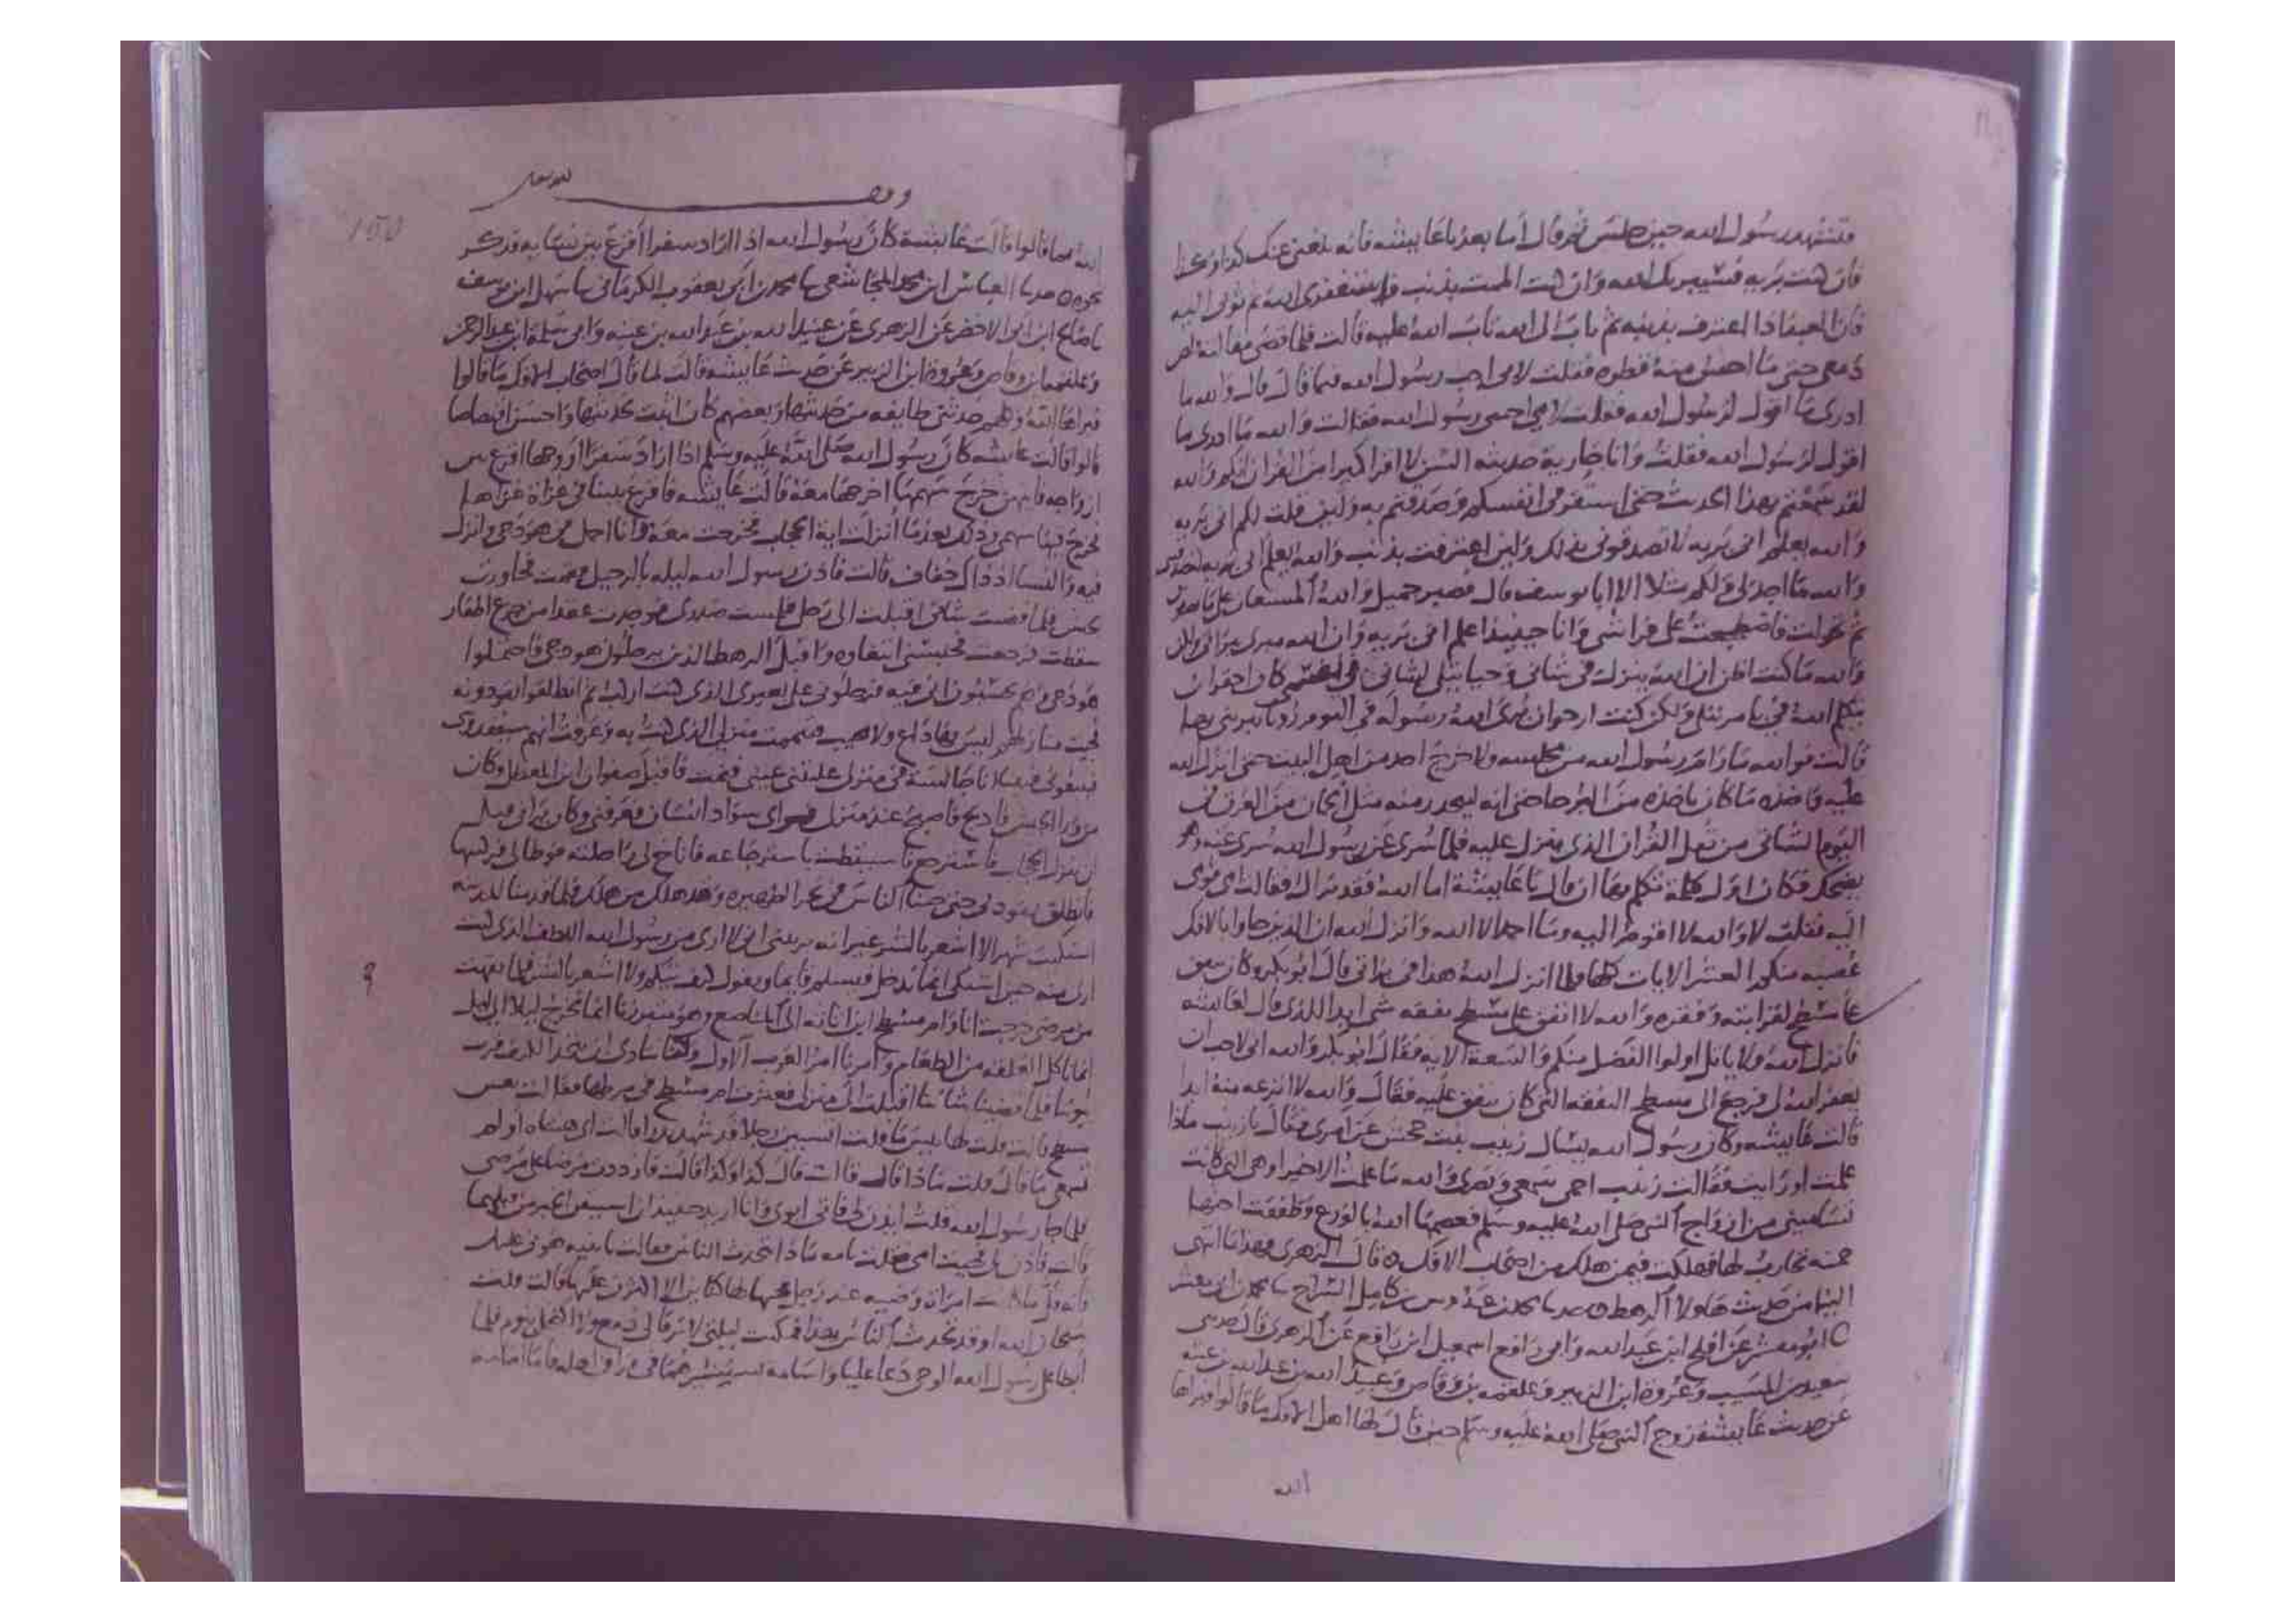 فتشهد رسول الله حين جلس ثم قال اما بعد يا عايشه فانه بلغني عنك كذا وكذا
فان كنت بريه فسيبريك الله وان كنت الممت بذنب فاستغفري الله ثم توبي اليه
فان العبد اذا اعترف بذنبه ثم تاب الى الله تاب الله عليه قالت فلما قضى مقالته قلص
دمعي حتى ما احس منه قطره فقلت لابي اجب رسول الله فيما قال قال والله ما
ادري ما اقول لرسول الله فقلت لامي اجيبي رسول الله فقالت والله ما ادري ما
اقول لرسول الله فقلت وانا جارية حديثه السن لا اقرا كبيرا من القران انكم والله
لقد سمعتم بهذا الحديث حتى استقر في انفسكم وصدقتم به ولين قلت لكم اني بريه
والله يعلم اني بريه لا تصدقوني بذلك ولين اعترفت بذنب والله يعلم اني بريه لتصدقني
والله ما اجد لي ولكم مثلا الا ابا يوسف قال فصبر جميل والله المستعان على ما تصفون
ثم تحولت فاضطجعت على فراشي وانا حينيذ اعلم اني بريه وان الله مبري ببراتي ولكن
والله ما كنت اظن ان الله ينزل في شاني وحيا يتلى لشاني في نفسي كان احقر ان
يتكلم الله في بامر يتلى ولكن كنت ارجوا ان يرى الله رسوله في النوم رويا يبريني بها
قالت فوالله ما رام رسول الله من مجلسه ولا خرج احد من اهل البيت حتى انزل الله
عليه فاخذه ما كان ياخذه من البرحا حتى انه ليتحدر منه مثل الجمان من العرق في
اليوم الشاتي من ثقل القران الذي ينزل عليه فلما سري عن رسول الله سري عنه وهو
يضحك فكان اول كلمة تكلم بها ان قال يا عايشة اما الله فقد براك فقالت امي قومي
اليه فقلت لا والله لا اقوم اليه وما احمد الا الله وانزل الله ان الذين جاوا بالافك
عصبه منكم العشر الايات كلها فلما انزل الله هذا في براتي قال ابو بكر وكان ينفق
على مسطح لقرابته وفقره والله لا انفق على مسطح بنفقه شي ابدا للذي قال لعايشه
فانزل الله ولا ياتل اولوا الفضل منكم والسعة الايه فقال ابو بكر والله اني لاحب ان
يغفر الله لي فرجع الى مسطح النفقه التي كان ينفق عليه فقال والله لا انزعه منه ابدا
قالت عايشه وكان رسول الله يسال زينب بنت جحش عن امري فقال يا زينب ماذا
علمت او رايت فقالت زينب احمي سمعي وبصري والله ما علمت الا خيرا وهي التي كانت
تساميني من ازواج النبي صلى الله عليه وسلم فعصمها الله بالورع وطفقت اختها
حمنه تحارب لها فهلكت فيمن هلك من اصحاب الافك ٥ قال الزهري فهذا ما انتهى
الينا من حديث هاولا الرهط ٥ حدثنا محمد بن عبدوس بن كامل السراج نا محمد ابن
ابو معشر عن افلح ابن عبد الله وابي رافع اسمعيل ابن رافع عن الزهري قال حدثني
سعيد بن المسيب وعروة ابن الزبير وعلقمه بن وقاص وعبيد الله بن عبد الله بن عتبه
عن حديث عايشة زوج النبي صلى الله عليه وسلم حين قال لها اهل الافك ما قالوا فبراها
الله
وقف لله تعالى
150
الله مما قالوا قالت عايشة كان رسول الله اذا اراد سفرا اقرع بين نسايه فذكر
نحوه ٥ حدثنا العباس ابن محمد المجاشعي نا محمد ابن ابي يعقوب الكرماني نا سهل ابن يوسف
نا صالح ابن ابي الاخضر عن الزهري عن عبيد الله بن عبد الله بن عتبه وابي سلمة ابن عبد الرحمن
وعلقمة بن وقاص وعروة ابن الزبير عن حديث عايشه قالت لما قال اصحاب الافك ما قالوا
فبراها الله وكلهم حدثني طايفه من حديثها وبعضهم كان اثبت بحديثها واحسن اقتصاصا
قالوا قالت عايشه كان رسول الله صلى الله عليه وسلم اذا اراد سفرا اقرع بين
ازواجه فايهن خرج سهمها اخرجها معه قالت عايشه فاقرع بيننا في غزاة غزاها
فخرج فيها سهمي وذلك بعد ما انزلت اية الحجاب فخرجت معه وانا احمل في هودجي وانزل
فيه والنسا اذ ذاك خفاف قالت فاذن رسول الله ليله بالرحيل فقمت فجاوزت
الجيش فلما قضيت شاني اقبلت الى رحلي فلمست صدري فوجدت عقدا من جزع اظفار
سقطت فرجعت فحبسني ابتغاوه واقبل الرهط الذين يرحلون هودجي فاحتملوا
هودجي وهم يحسبون اني فيه فرحلوني على بعيري الذي كنت اركب ثم انطلقوا يقودونه
فجيت منازلهم ليس بها داع ولا مجيب فتيممت منزلي الذي كنت به وعرفت انهم سيفقدوني
فيبغوني فبينا انا جالسة في منزلي غلبتني عيني فنمت فاقبل صفوان ابن المعطل وكان
من ورا الجيش فادلج فاصبح عند منزلي فراى سواد انسان فعرفني وكان يراني قبل
ان ينزل الحجاب فاسترجع فاستيقظت باسترجاعه فاناخ لي راحلته فوطا لي فركبتها
فانطلق يقود بي حتى جينا الناس في نحر الظهيره وقد هلك من هلك فلما قدمنا المدينه
اشتكيت شهرا لا اشعر بالشر غير انه يريبني اني لا ارى من رسول الله اللطف الذي كنت
ارى منه حين اشتكي انما يدخل فيسلم قايما ويقول كيف تيكم ولا اشعر بالشر فلما نقهت
من مرضي خرجت انا وام مسطح ابن اثاثه الى المناصع وهو متبرزنا انما نخرج ليلا الى ليل
انما ناكل العلقه من الطعام وامرنا امر العرب الاول وكنا نتاذى ان نتخذ الكنف قرب
بيوتنا فلما قضينا شاننا اقبلت الى منزلي فعثرت ام مسطح في مرطها فقالت تعس
مسطح قالت قلت لها بيس ما قلت اتسبين رجلا قد شهد بدرا قالت اي هنتاه اولم
تسمعي ما قال قلت ماذا قال قالت قال كذا وكذا قالت فازددت مرضا على مرضي
فلما جا رسول الله قلت ايذن لي فاتي ابوي وانا اريد حينيذ ان استيقن الخبر من قبلهما
قالت فاذن لي فجيت امي فقلت يا امه ماذا تتحدث الناس فقالت يا بنيه هوني عليك
فانه قل ما كانت امراة وضيه عند رجل يحبها لها ضراير الا اكثرن عليها قالت قلت
سبحان الله او قد تحدث الناس بهذا فمكثت ليلتي لا يرقا لي دمع ولا اكتحل بنوم فلما
ابطا على رسول الله الوحي دعا عليا واسامه يستشيرهما في فراق اهله فاما اسامه